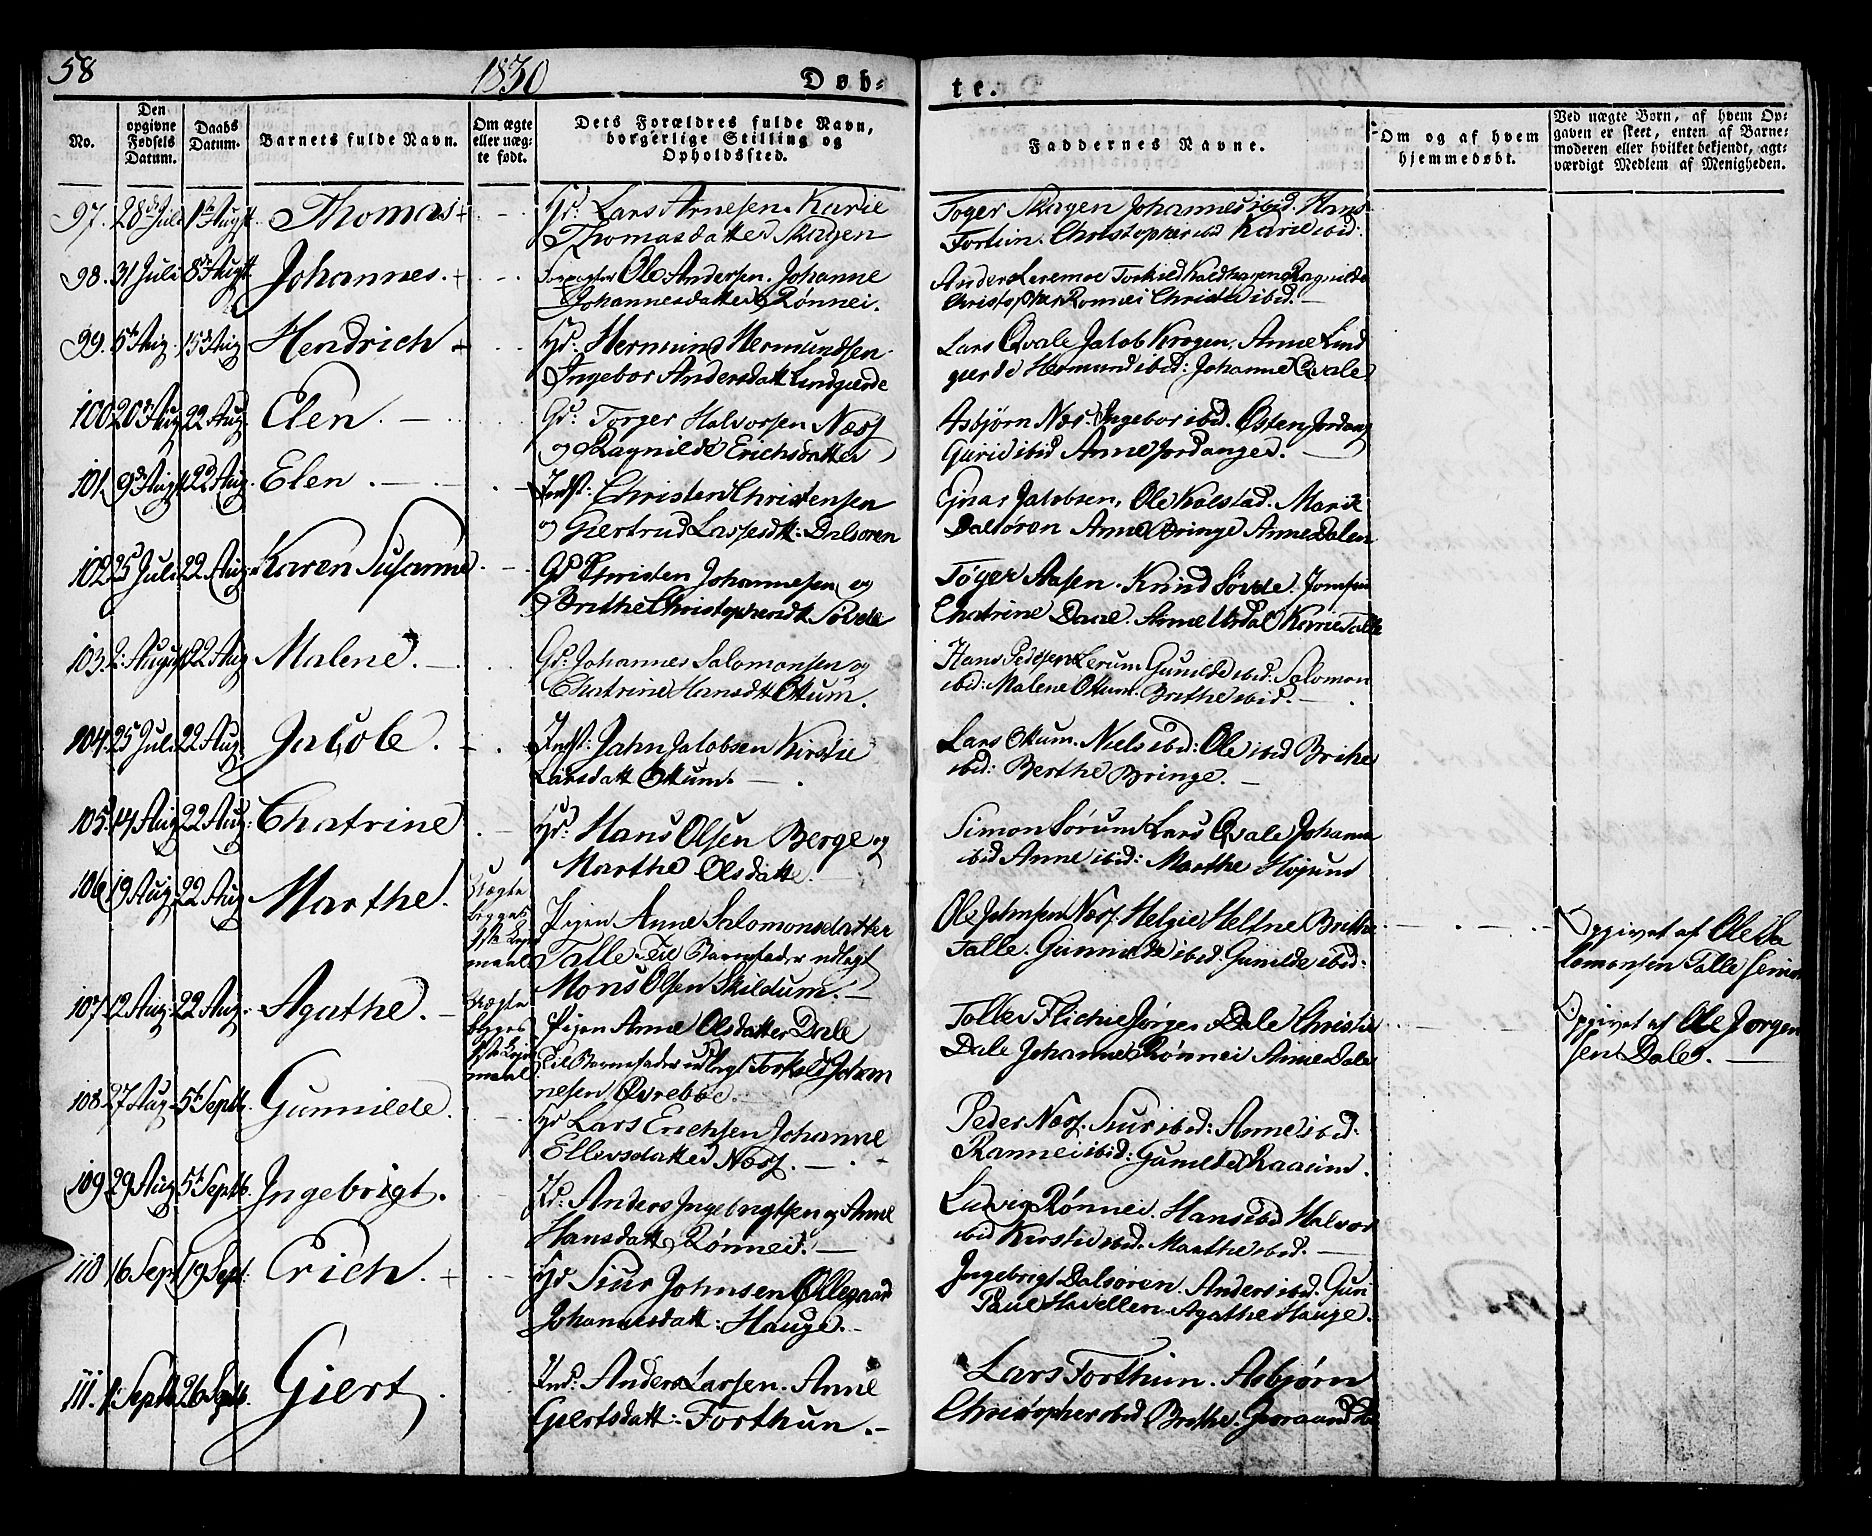 58
1830
Døb-
te.
No.
Den opgivne Fødsels Datum.
Daabs Datum.
Barnets fulde Navn.
Om ægte eller uægte født.
Dets Forældres fulde Navn, borgerlige Stilling og Opholdssted.
Faddernes Navne.
Om og af hvem hjemmedøbt.
Ved uægte Børn, af hvem Opgaven er skeet, enten af Barnemoderen eller hvilket bekjendt, agtværdigt Medlem af Menigheden.
97. 28de Juli 1te Augst. Thomas + Gd: Lars Arnesen. Karie
Thomasdatter Skagen
Toger Skagen Johannes ibid. Hans
Fortun. Christopher ibid Karie ibid:
98. 31 Juli 8de Augst Johannes. + Ole Andersen. Johanne
Johannesdatter Rønnei.
Anders Leremoe Torkild Kaldhagen Ragnilde
Christopher Rønnei Christie ibid. —
99. 5te Aug. 15de Aug Hendrich + Gd: Hermund Hermundsen
Ingebor Andersdatt Lindgierde
Lars Qvale Jacob Krogen. Anne Lind
gierde Hermund ibid: Johanne Qvale
100 20de Aug 22 Aug. Elen. — Gd: Torger Halvorsen Næss
og Ragnilde Erichsdatter
Asbjørn Næs. Ingebor ibid. Østen Jordang
Gurid ibid Anne Jordanger. —
101. 9de Augst 22 Aug. Elen. — Indst: Christen Christensen
og Giertrud Lassesdtt: Dalsøren
Jacobsen, Ole Kolstad. Marie
Dalsøren Anne Bringe Anne Dalen
102 25 Juli 22 Aug: Karen Susanne. Gd Christen Johannesen og
Brithe Christophersdt Søvde
Tøger Aasen. Knud Søvde.
Chatrine Daae. Anne Urdal Karie Talle
103. 2: August 22 Aug Malene. — Gd: Johannes Salomonsen og
Chatrine Hansdtt Ottum.
Hans Pedersen Lerum Gunilde ibid. Salomon
ibid: Malene Ottum. Brithe ibid. —
104. 25 Juli 22 Aug. Jacob. + Indst: Jahn Jacobsen Kirstie
Larsdatt Ottum. —
Lars Ottum. Niels ibid: Ole ibid Brithe
ibid: Berthe Bringe. —
105. 14 Aug 22 Aug: Chatrine Gd: Hans Olsen Berge og
Marthe Olsdatte.
Simon Sørum Lars Qvale Johanne
ibid Anne ibid: Marthe Højsund
106 19 Aug. 22 Aug Marthe. Uægte
begges
1ste Leier
maal
Pigen Anne Salomonsdatter
Talle Til Barnefader udlagt
Mons Olsen Skildum. —
Ole Johnsen Næss. Helgie Heltne Brithe
Talle. Gunnilde ibid. Gunilde ibid:
Opgivet af Ole Sa
lomonsen Talle
107 12 Aug: 22 Aug: Agathe. — Uægte
begges
1ste Leier
maal
Pigen Anne Olsdatter Dale
Til Barnefader udlagt Torkild Johan
nesen Øvrebøe. —
Tolle Flichie Jørgen Dale Christie
Dale Johanne Rønnei Anne Dale
Opgivet af Ole Jørgen
sen Dale. —
108. 27 Aug. 5t Septb. Gunnilde. Gd Lars Erichsen Johanne
Ellevsdatter Næss. —
Peder Næss. Siur ibid: Anne ibid:
Rannei ibid: Gunilde Kaasum.
109. 29 Aug 5t Septb. Ingebrigt. Gd: Anders Ingebrigtsen og Anne
Hansdatt Rønnei. —
Ludvig Rønnei. Hans ibid Halvor
ibid Kirstie ibid. Marthe ibid. —
110 16 Sept 19 Sept: Erich. + Gd Siur Johnsen Ollegaard
Johannesdatt: Hauge. —
Ingebrigt Dalsøren. Anders ibid. Guri
Paul Havellen. Agathe Hauge.
111. 1: Septb 26 Septb. Giert. Ind: Anders Larsen. Anne
Giertsdatt: Forthun. —
Lars Forthun. Asbjørn
Christopher ibid Brithe.